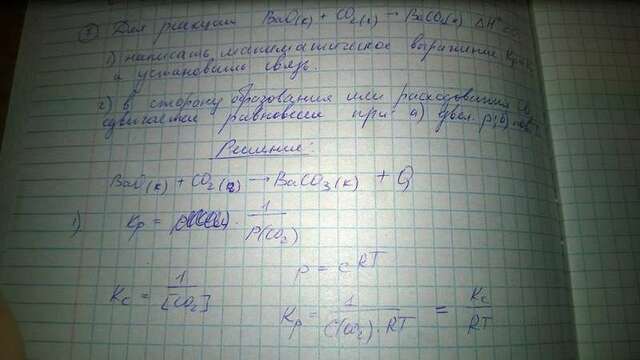 Для реакции BaO(к) + CO₂(г) → BaCO₃(к) ΔH°<0
1) написать математическое выражение
и установить связь.
2) в сторону образования или расходования
сдвигается равновесие при: а) увел. p; б)
Решение:
BaO(к) + CO₂(г) → BaCO₃(к) + Q
1) Kp = 1/P(CO₂)
p = cRT
Kc = 1/[CO₂]
Kp = 1/C(CO₂)·RT = Kc/RT